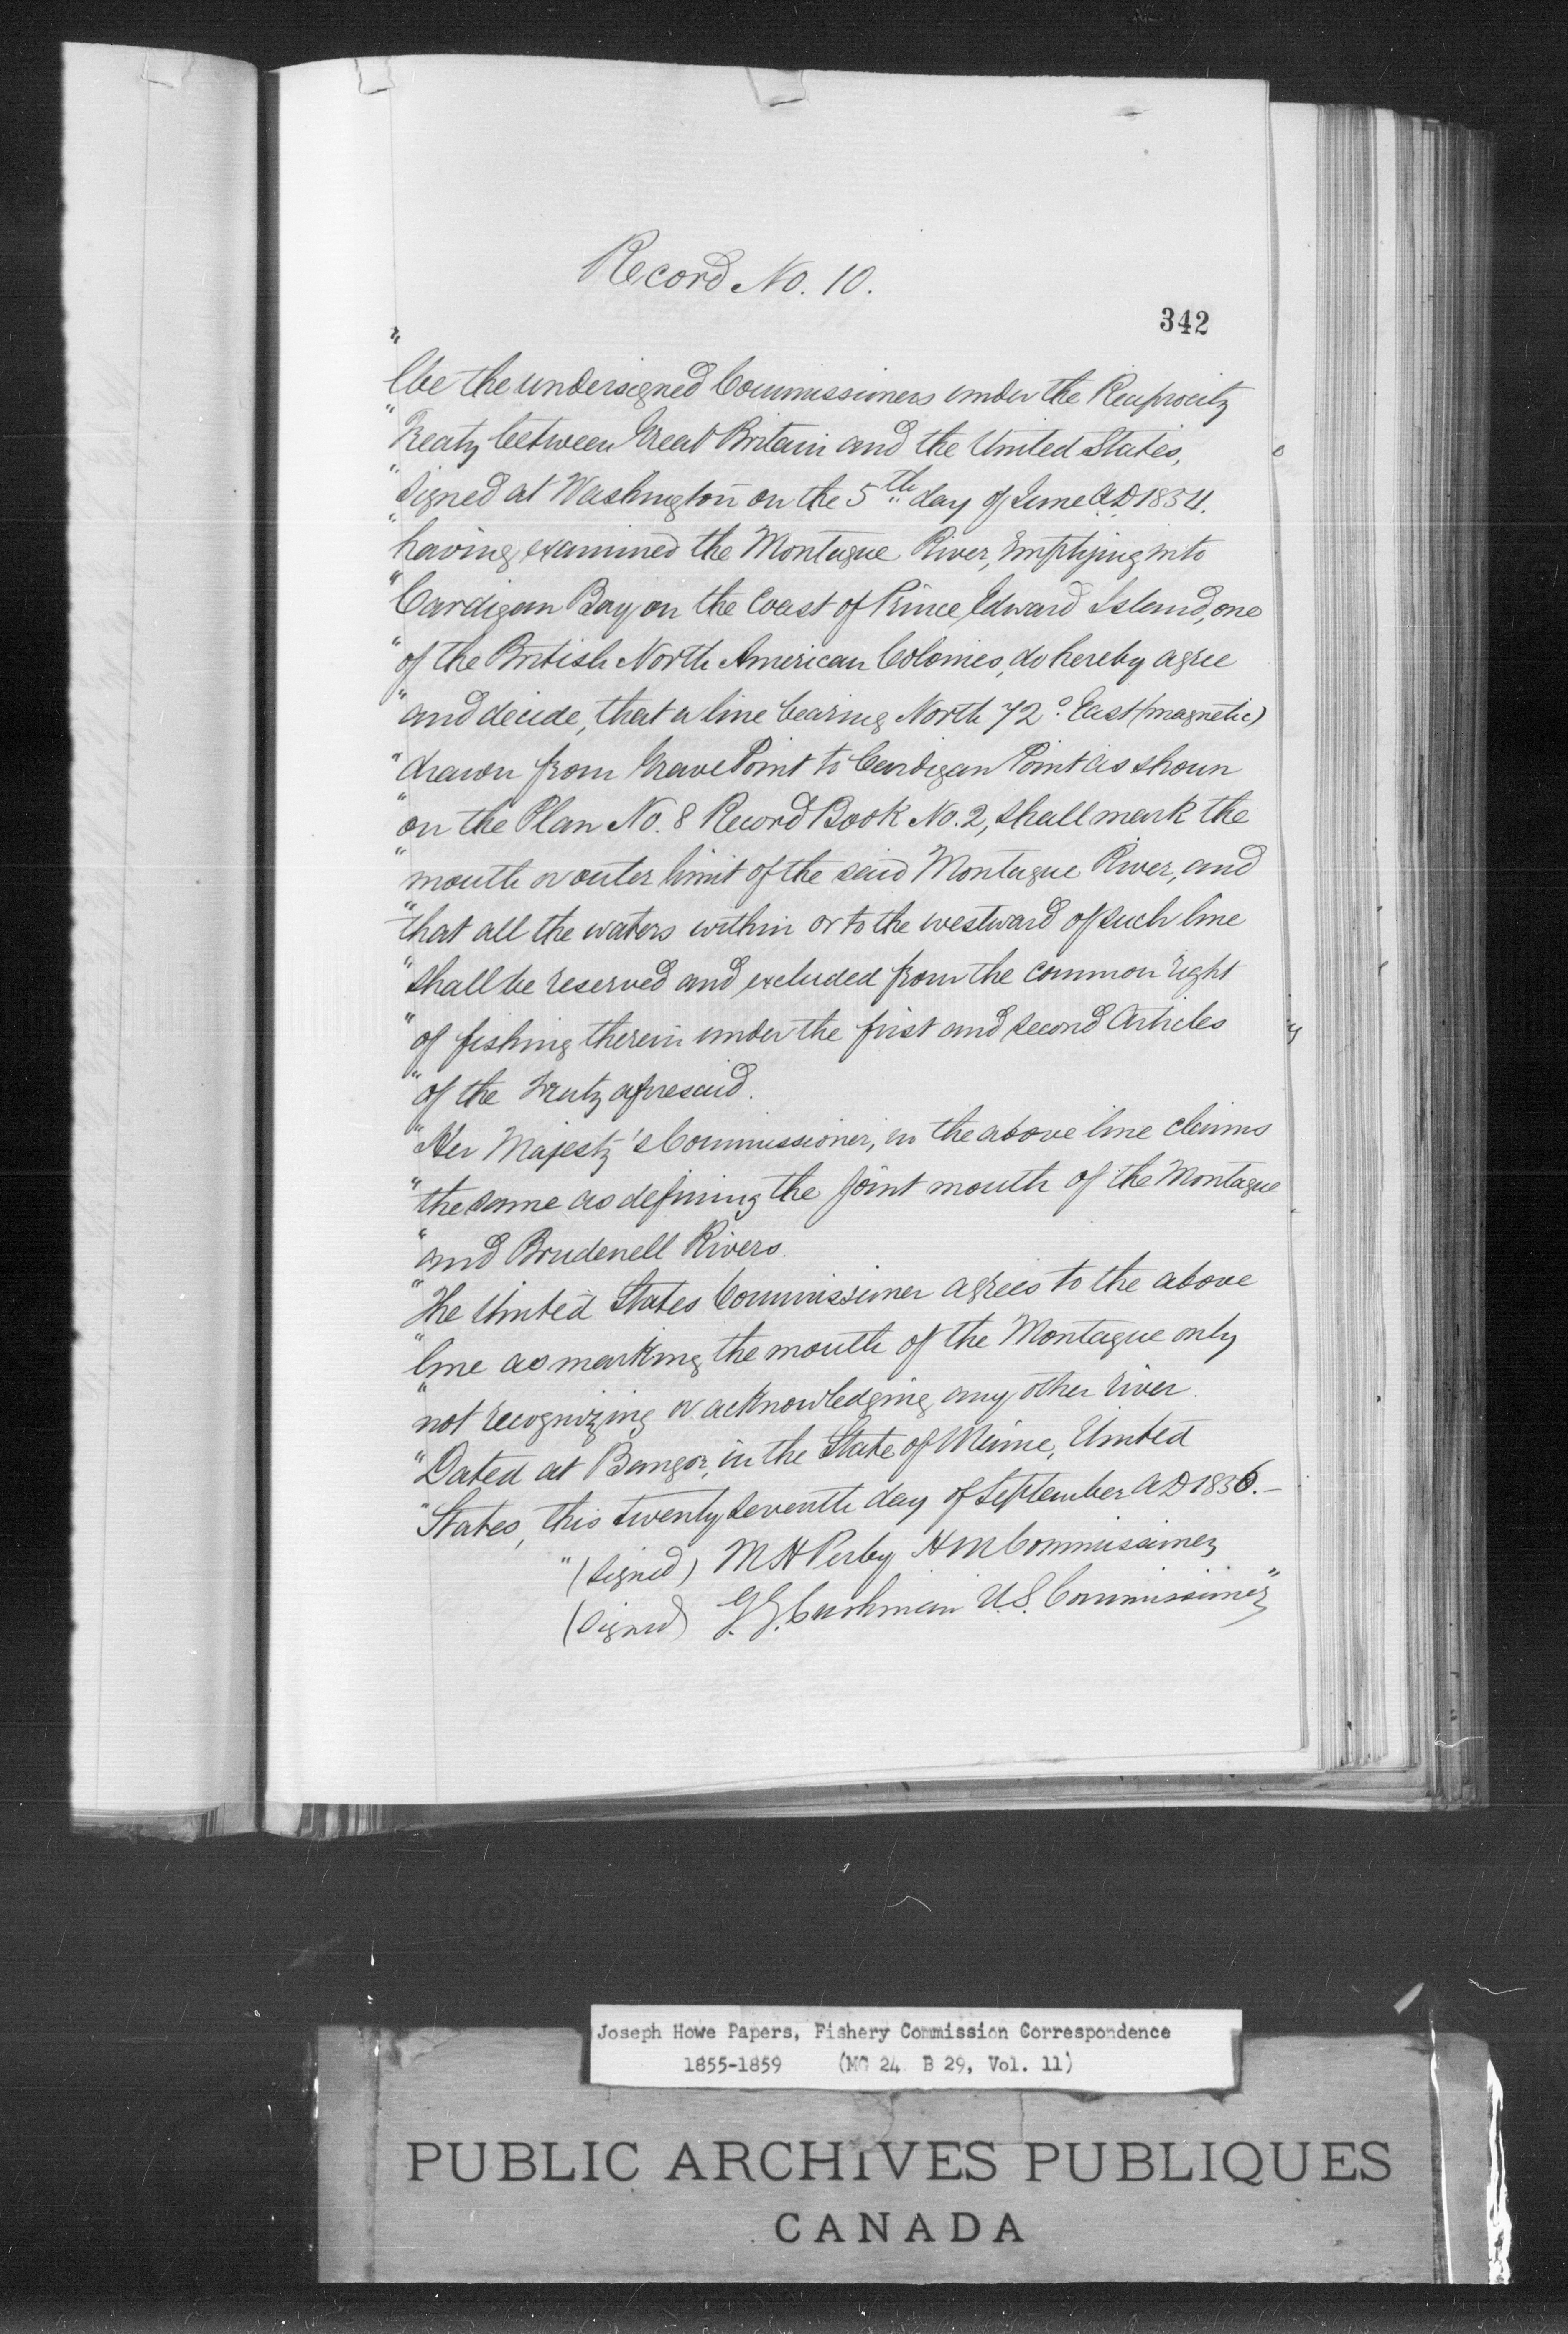 Record No. 10.
342
"
We the undersigned Commissioners under the Reciprocity
"Treaty between Great Britain and the United States,
"Signed at Washington on the 5th day of June A.D. 1854.
"having examined the Montague River, emptying into
"Cardigan Bay on the Coast of Prince Edward Island, one
"of the British North American Colonies, do hereby agree
"and decide, that a line bearing North 72° East (magnetic)
"drawn from Grave Point to Cardigan Point as shown
"on the Plan No. 8 Record Book No. 2, shall mark the
"mouth or outer limit of the said Montague River, and
"that all the waters within or to the westward of such line
"shall be reserved and excluded from the common right
"of fishing therein under the first and second Articles
"of the treaty aforesaid.
"Her Majesty's Commissioner, in the above line claims
"the same as defining the joint mouth of the Montague
"and Brudenell Rivers.
"The United States Commissioner agrees to the above
"line as marking the mouth of the Montague only
"not recognizing or acknowledging any other river.
"Dated at Bangor, in the State of Maine, United
"States, this twenty seventh day of September A D 1856.–
"(signed) M H Perley H M Commissioner
(signed) G. G. Cushman U.S. Commissioner"
Joseph Howe Papers, Fishery Commission Correspondence
1855-1859 (MG 24 B 29, Vol. 11)
PUBLIC ARCHIVES PUBLIQUES
CANADA